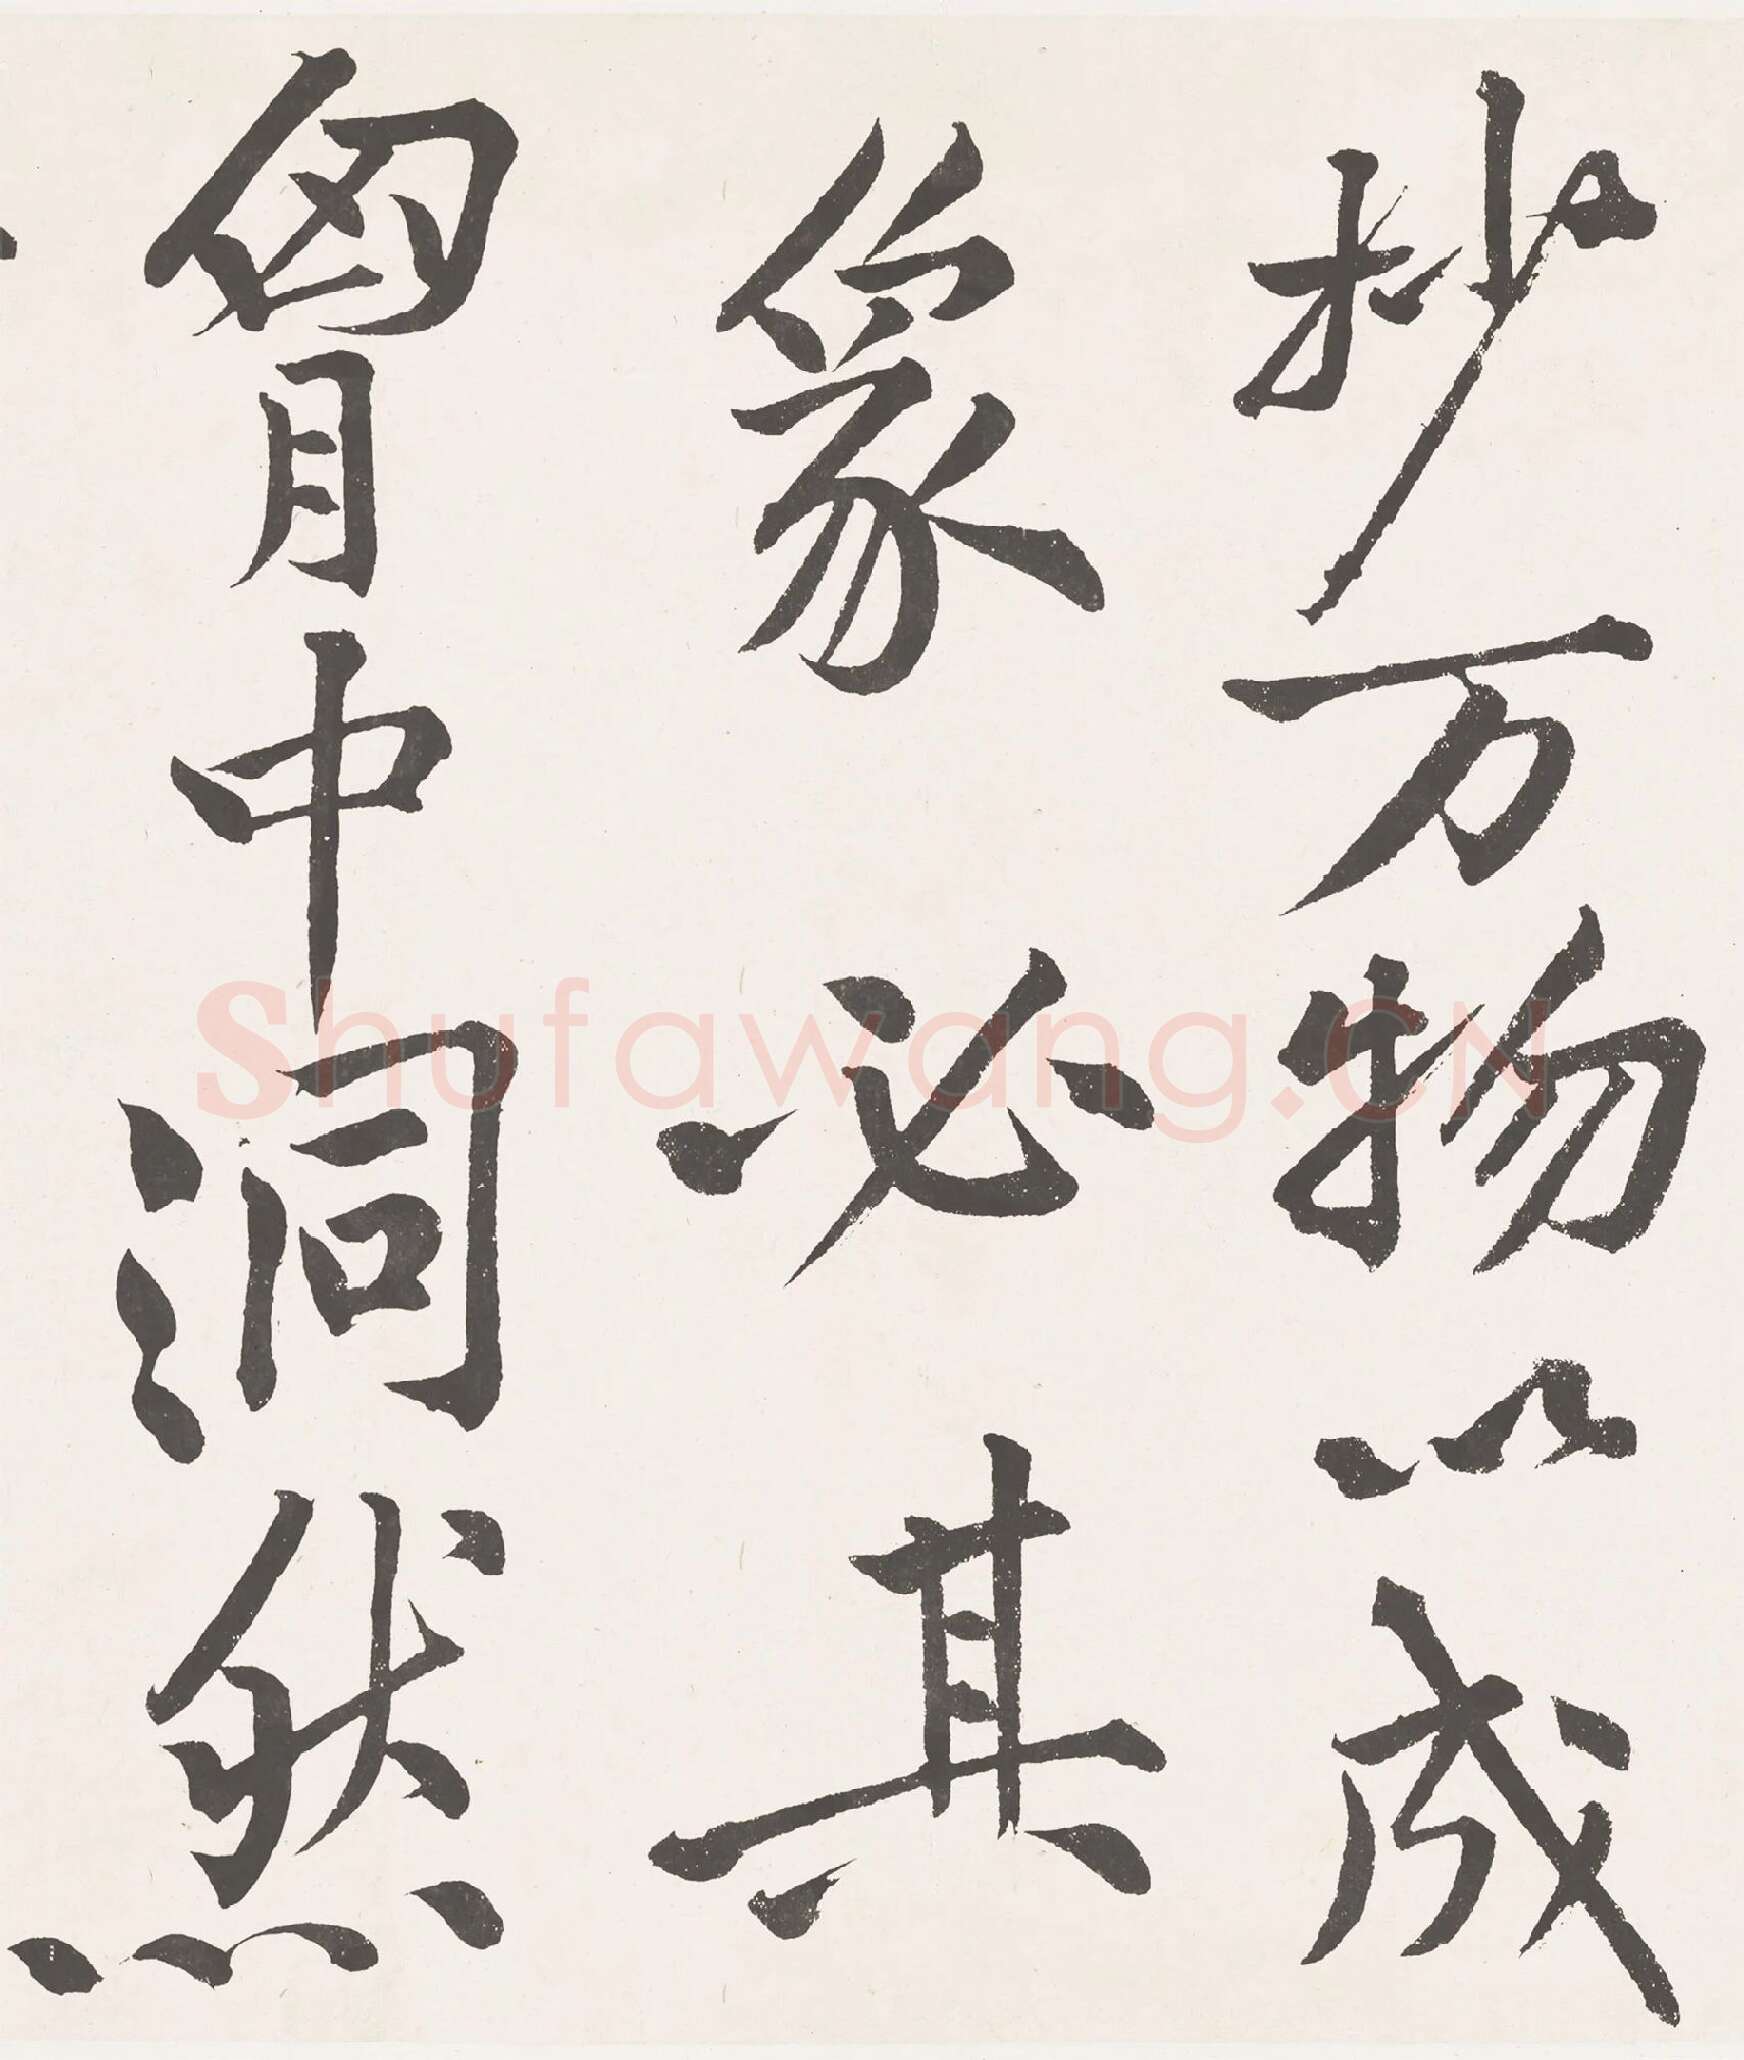 抄万物以成
篆必其
胷中洞然
Shufawang.CN